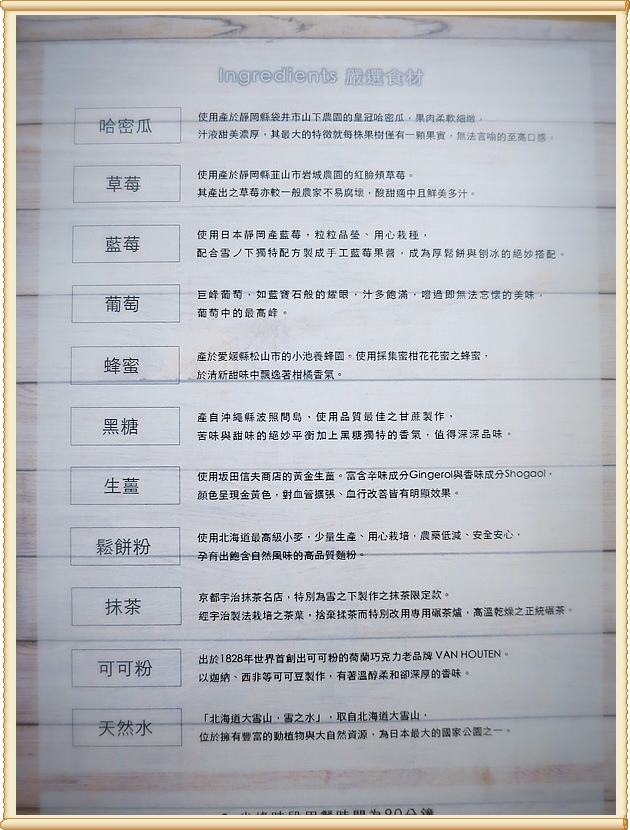 Ingredients 嚴選食材
哈密瓜
使用產於靜岡縣袋井市山下農園的皇冠哈密瓜，果肉柔軟細緻，
汁液甜美濃厚，其最大的特徵就每株果樹僅有一顆果實，無法言喻的至高口感。
草莓
使用產於靜岡縣韮山市岩城農園的紅臉頰草莓。
其產出之草莓亦較一般農家不易腐壞，酸甜適中且鮮美多汁。
藍莓
使用日本靜岡產藍莓，粒粒晶瑩、用心栽種，
配合雪ノ下獨特配方製成手工藍莓果醬，成為厚鬆餅與刨冰的絕妙搭配。
葡萄
巨峰葡萄，如藍寶石般的耀眼，汁多飽滿，嚐過即無法忘懷的美味，
葡萄中的最高峰。
蜂蜜
產於愛媛縣松山市的小池養蜂園。使用採集蜜柑花花蜜之蜂蜜，
於清新甜味中飄逸著柑橘香氣。
黑糖
產自沖繩縣波照間島，使用品質最佳之甘蔗製作，
苦味與甜味的絕妙平衡加上黑糖獨特的香氣，值得深深品味。
生薑
使用坂田信夫商店的黃金生薑。富含辛味成分Gingerol與香味成分Shogaol，
顏色呈現金黃色，對血管擴張、血行改善皆有明顯效果。
鬆餅粉
使用北海道最高級小麥，少量生產、用心栽培，農藥低減、安全安心，
孕育出飽含自然風味的高品質麵粉。
抹茶
京都宇治抹茶名店，特別為雪之下製作之抹茶限定款。
經宇治製法栽培之茶葉，捨棄揉茶而特別改用專用碾茶爐，高溫乾燥之正統碾茶。
可可粉
出於1828年世界首創出可可粉的荷蘭巧克力老品牌 VAN HOUTEN。
以迦納、西非等可可豆製作，有著溫醇柔和卻深厚的香味。
天然水
「北海道大雪山，雪之水」，取自北海道大雪山，
位於擁有豐富的動植物與大自然資源，為日本最大的國家公園之一。
尖峰時段用餐時間為90分鐘